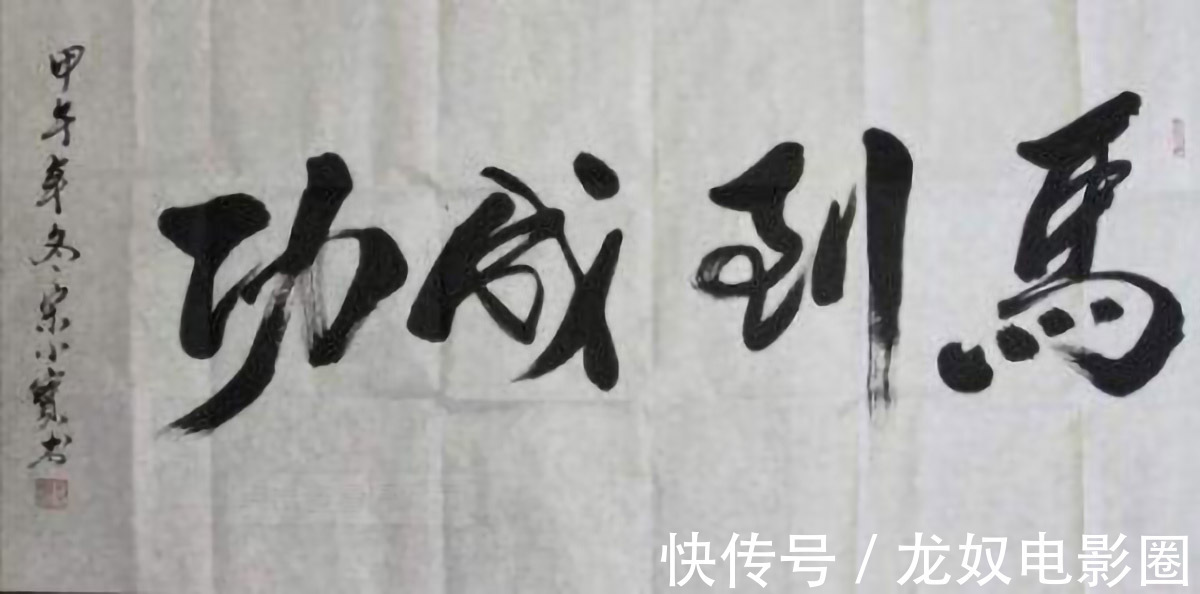 馬到成功
甲午年冬宋小寶书
快传号 / 龙奴电影圈